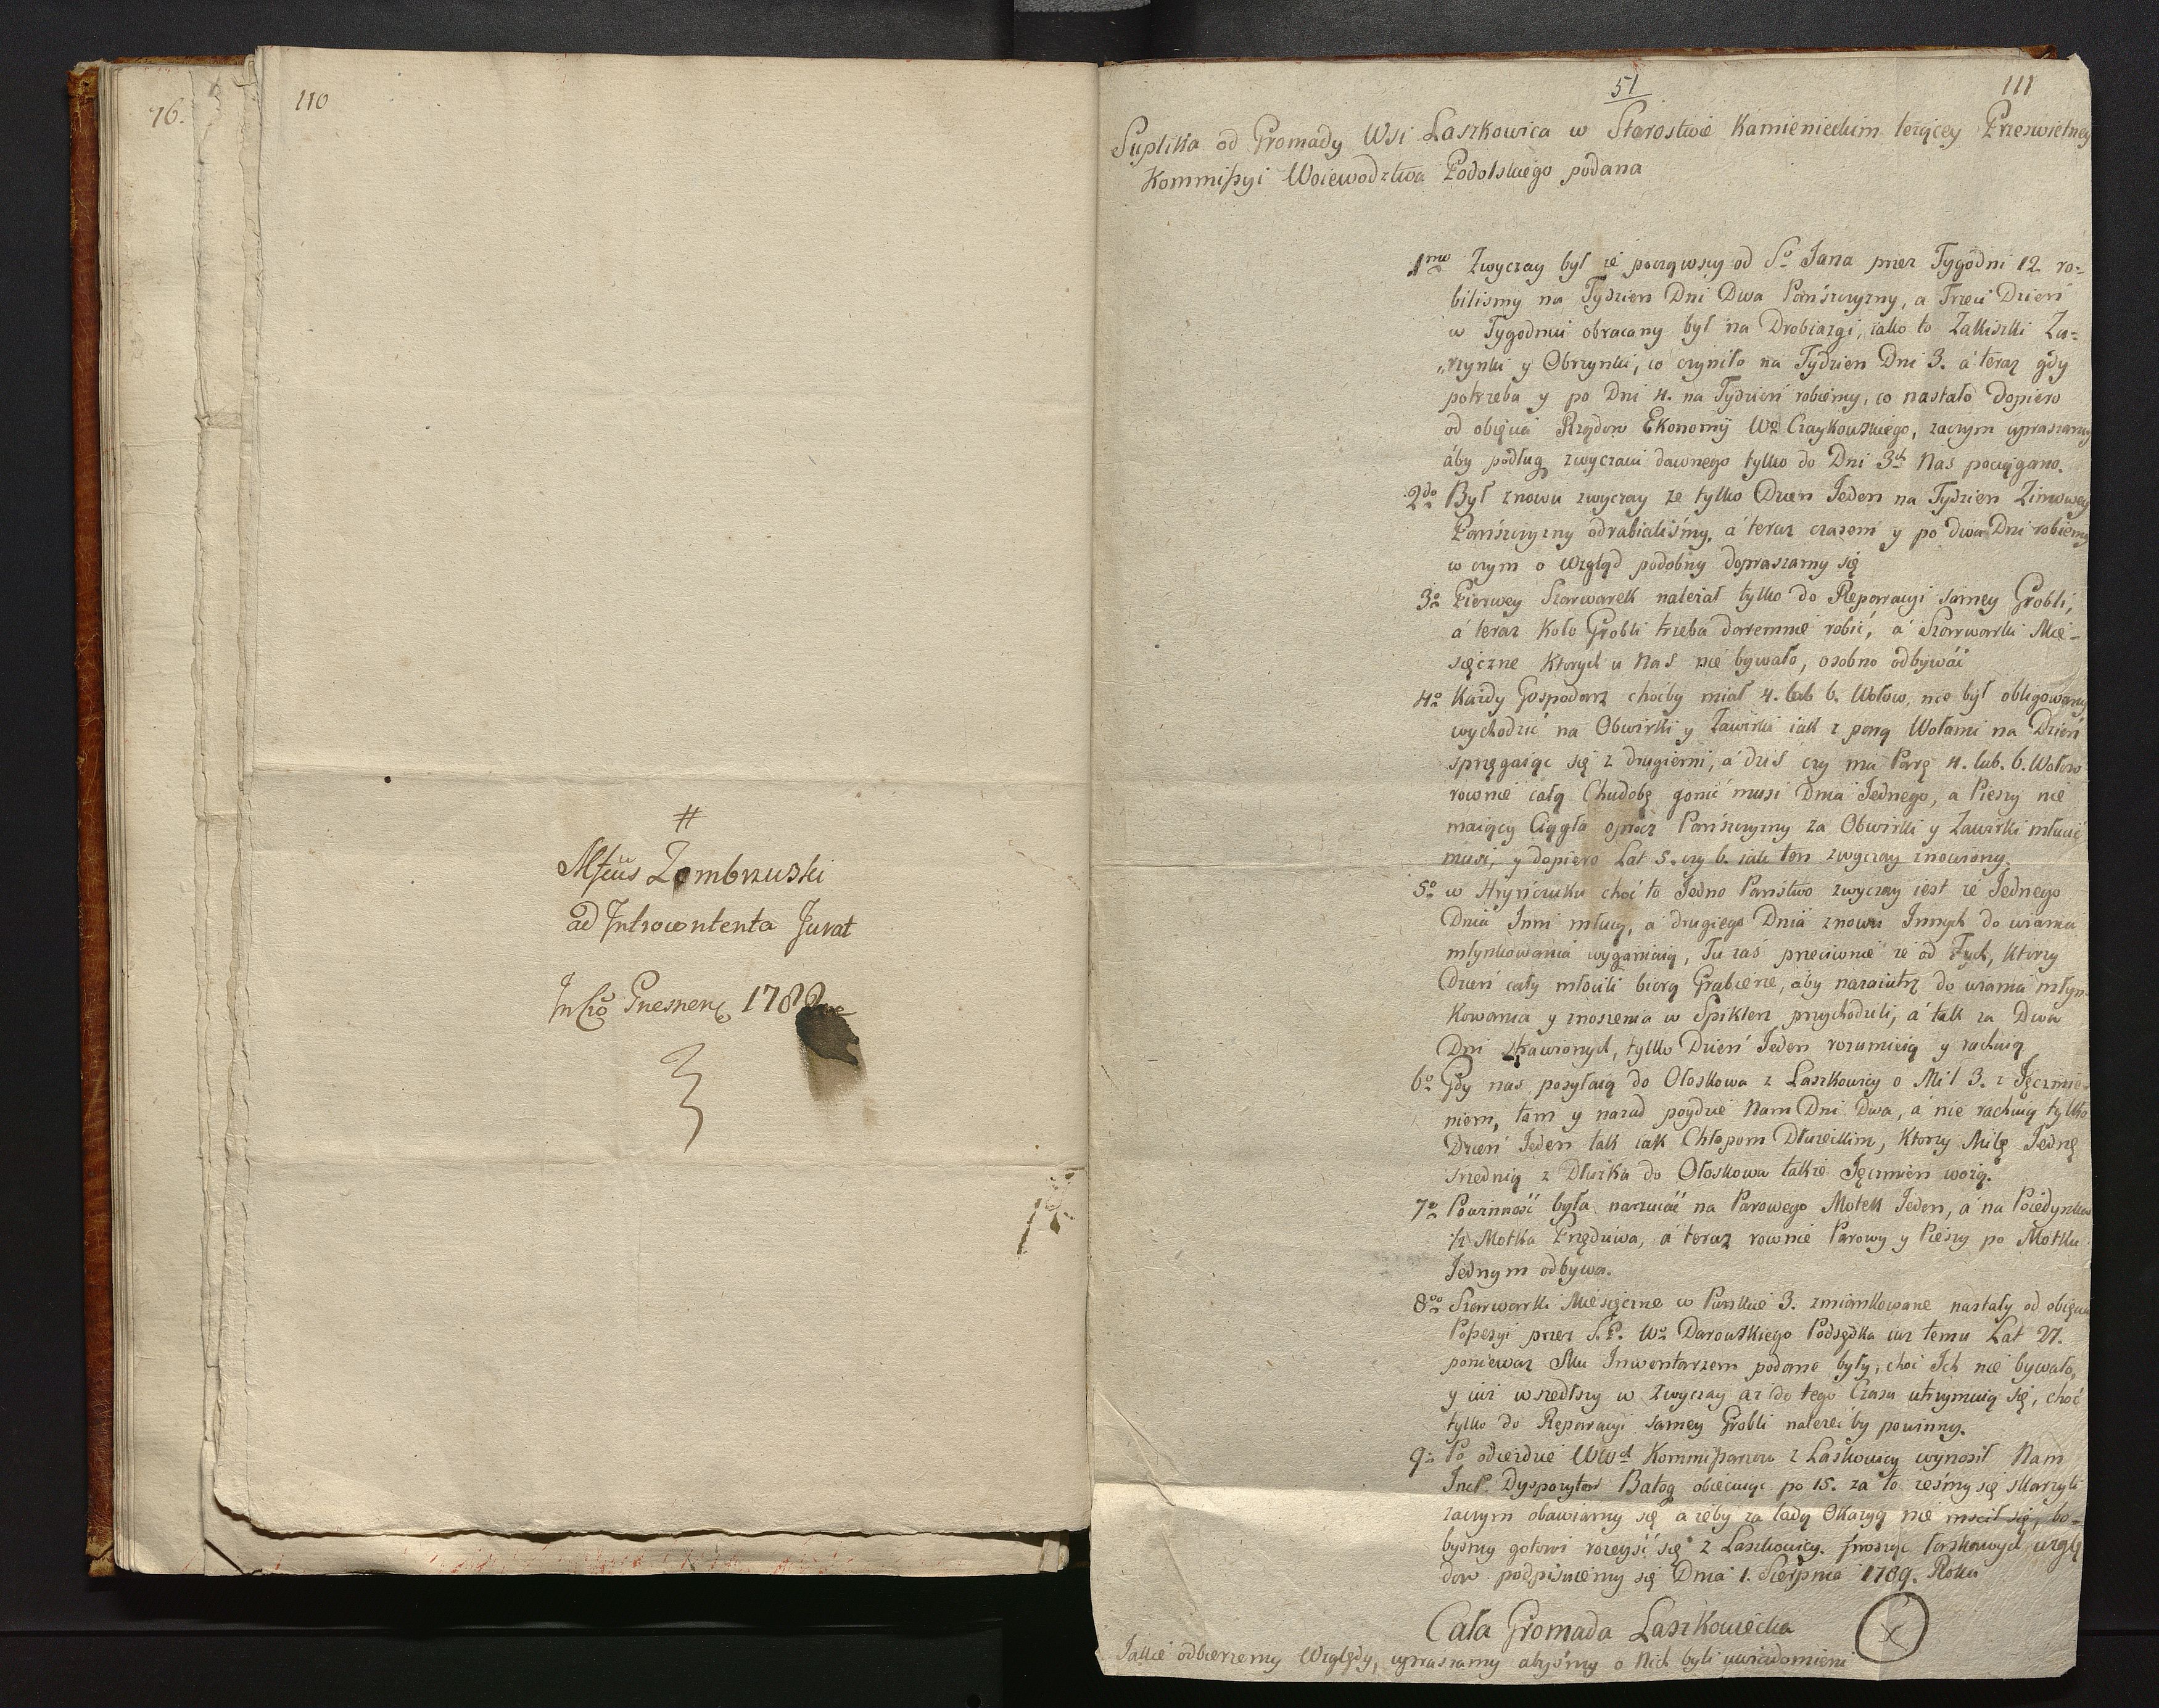 76.
110
#
Zembrzuski
ad Introcontenta Jurat
1788
51
111
Suplika od Gromady Wsi Laszkowica w Starostwie Kamienieckim leżącey Prześwietney
Kommissyi Woiewodztwa Podolskiego podana
1mo Zwyczay był że począwszy od So Jana przez Tygodni 12. ro-
bilismy na Tydzien Dni Dwa Pańszczyzny, a Trzeci Dzień
w Tygodniu obracany był na Drobiazgi, iako to Zakiski Za-
„rzynki y Obrzynki, co czyniło na Tydzien Dni 3. a teraz gdy
potrzeba y po Dni 4. na Tydzień robiemy, co nastało dopiero
od obięcia Rządow Ekonomij Wo Czaykowskiego, zaczym upraszamy
áby podług zwyczaiu dawnego tylko do Dni 3ch Nas pociągano.
2do Był znowu zwyczay że tylko Dzien Jeden na Tydzien Zimowey
Pańszczyzny odrabialiśmy, á teraz czasem y po dwa Dni robiemy
w czym o wzgląd podobny dopraszamy się
3o Pierwey Szarwarek należał tylko do Reparacyi samey Grobli,
á teraz koło Grobli trzeba daremnie robić, á Szarwarki Mie-
sięczne ktorych u Nas nie bywało, osobno odbywać
4o Każdy Gospodarz choćby miał 4. lub 6. Wołow, nie był obligowany
wychodzić na Obwirki y Zawirki iak z parą Wołami na Dzień
sprzęgaiąc się z drugiemi, á dziś czy ma Parę 4. lub. 6. Wołow
rownie całą Chudobę gonić musi Dnia Jednego, a Pieszy nie
maiący Ciągła oprocz Pańszczyzny za Obwirki y Zawirki młucić
musi, y dopiero Lat 5. czy 6. iak ten zwyczay znowiony.
5o w Hryńczuku choć to Jedno Państwo zwyczay iest że Jednego
Dnia Inni młucą, a drugiego Dnia znowu Innych do wiania
młynkowania wyganiaią, Tu zaś przeciwnie że od Tych, ktorzy
Dzień cały młocili biorą Grabieże, aby nazaiutrz do wiania młyn-
kowania y znoszenia w Spiklerz przychodzili, á tak za Dwa
Dni strawionych, tylko Dzień Jeden rozumieią y rachuią
6o Gdy nas posyłaią do Ołoskowa z Laszkowicy o Mil 3. z Jęczmie-
niem, tam y nazad poydzie Nam Dni Dwa, á nie rachuią tylko
Dzień Jeden tak iak Chłopom Dłużeckim, ktorzy Milę Jedną
srzednią z Dłużka do Ołoskowa także Jęczmień wożą.
7o Powinność była narzucać na Parowego Motek Jeden, á na Poiedynka
1/2 Motka Przędziwa, á teraz rownie Parowy y Pieszy po Motku
Jednym odbywa.
8vo Szarwarki Miesięczne w Punkcie 3. zmiankowane nastały od obięcia
Possesyi przez S.P. Wo Darowskiego Podsędka iuz temu Lat 27.
poniewaz Mu Inwentarzem podane były, choć Ich nie bywało,
y iuż wszedłszy w zwyczay aż do tego Czasu utrzymuią się, choć
tylko do Reparacyi samey Grobli należeć by powinny.
9o Po odieździe WWch Kommissarzow z Laskowicy wynosił Nam
JmP. Dyspozytor Batog obiecuiąc po 15. za to żeśmy się skarzyli
zaczym obawiamy się ażeby za ladą Okazyą nie mscił się, bo-
byśmy gotowi rozeyść się z Laszkowicy. prosząc łaskawych wzglę
dow podpisuiemy się Dnia 1. Sierpnia 1789. Roku
Cała Gromada Laszkowiecka X
Jakie odbierzemy Względy, upraszamy abyśmy o Nich byli uwiadomieni